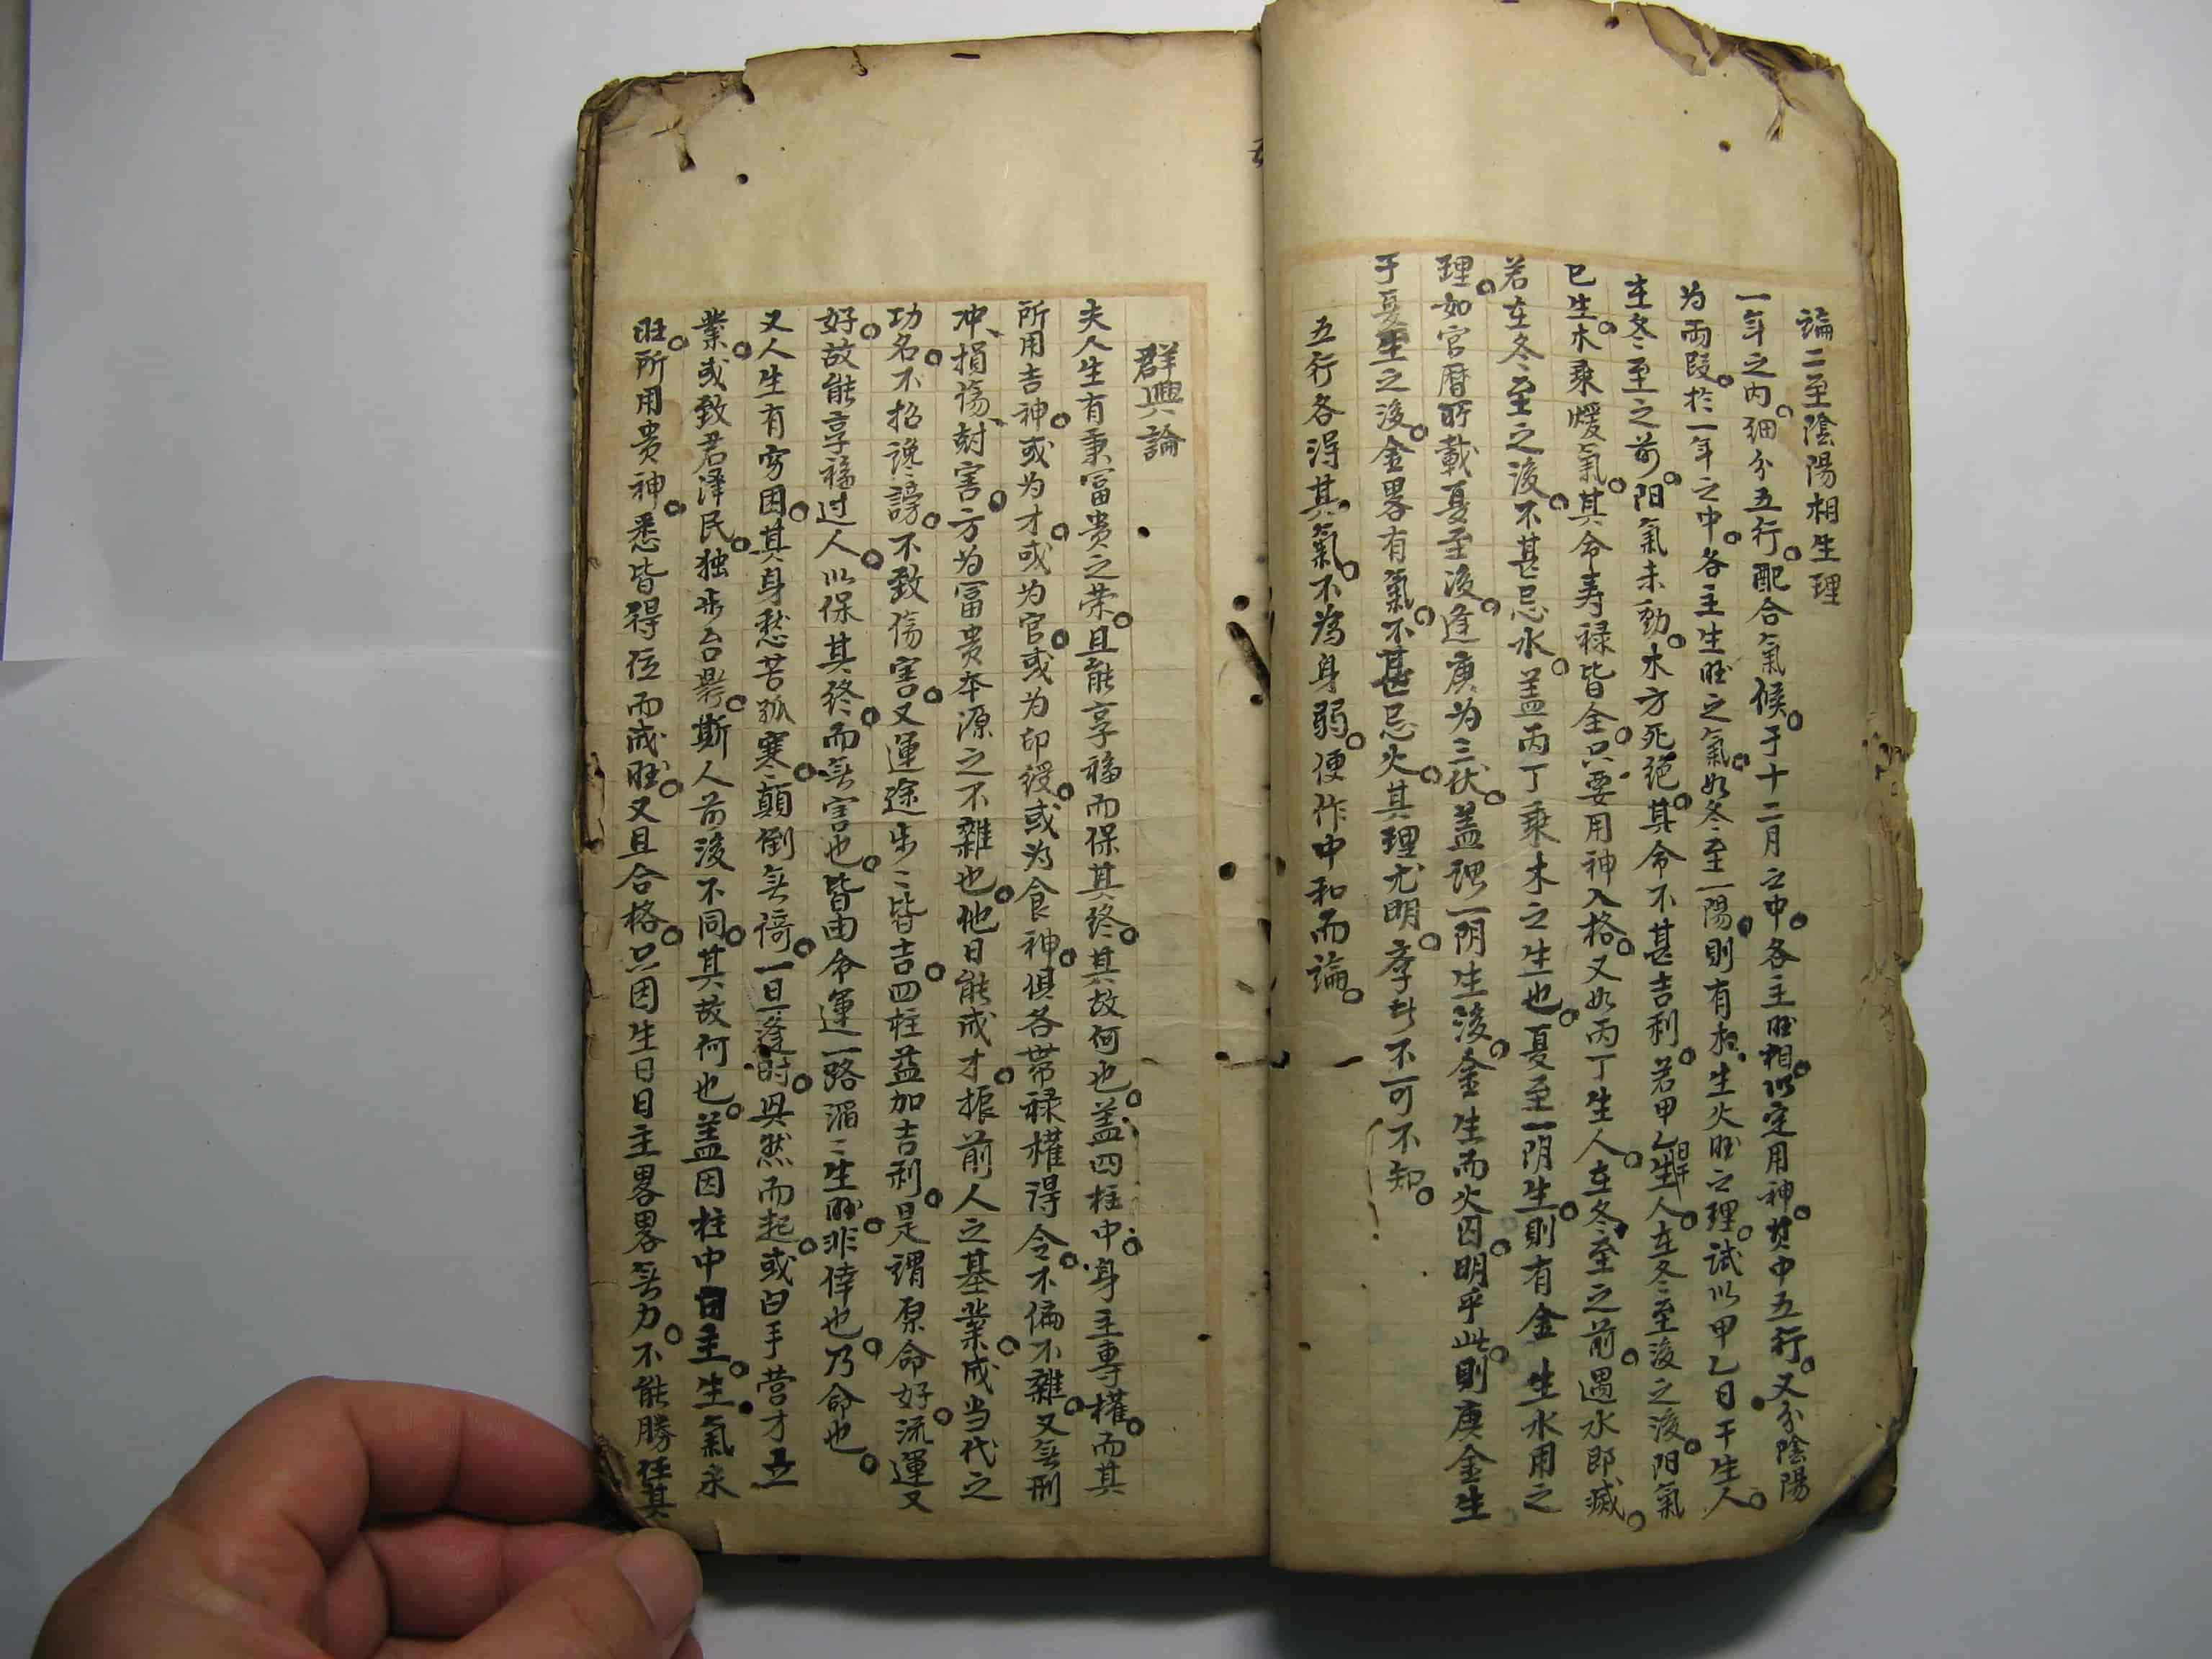 論二至陰陽相生理
一年之内。细分五行。配合氣候。于十二月之中。各主旺相。以定用神。其中五行。又分陰陽
为兩段。於一年之中。各主生旺之氣。如冬至一陽。則有木。生火旺之理。試以甲乙日干生人。
在冬至之前。阳氣未動。木方死绝。其命不甚吉利。若甲乙日干生人。在冬至後之後。阳氣
已生。木乘煖氣。其命寿禄皆全。只要用神入格。又如丙丁生人。在冬至之前。遇水即滅。
若在冬至之後。不甚忌水。盖丙丁乘木之生也。夏至一阴生。則有金生水用之
理。如官曆所載夏至後。逢庚为三伏。盖謂一阴生後。金生而火囚。明乎此。則庚金生
于夏至之後。金畧有氣。不甚忌火。其理尤明。李君不可不知。
五行各得其氣。不為身弱。便作中和而論。
群興論
夫人生有秉富贵之荣。且能享福而保其終。其故何也。盖四柱中。身主專權。而其
所用吉神。或为才。或为官。或为印綬。或为食神。俱各帶禄權得令。不偏不雜。又無刑
冲、損傷、尅害。方为富贵本源之不雜也。他日能成才振前人之基業。成当代之
功名。不招讒謗。不致傷害。又運途步〻皆吉。四柱益加吉利。是謂原命好。流運又
好。故能享福过人。以保其終。而無害也。皆由命運一路滔〻生旺。非倖也。乃命也。
又人生有穷困。其身愁苦孤寒。顛倒無倚。一旦逢時。興然而起。或白手营才立
業。或致君澤民。独步台鼎。斯人前後不同。其故何也。盖因柱中日主。生氣未
旺。所用贵神。悉皆得位而成旺。又且合格。只因生日日主畧畧無力。不能勝任其